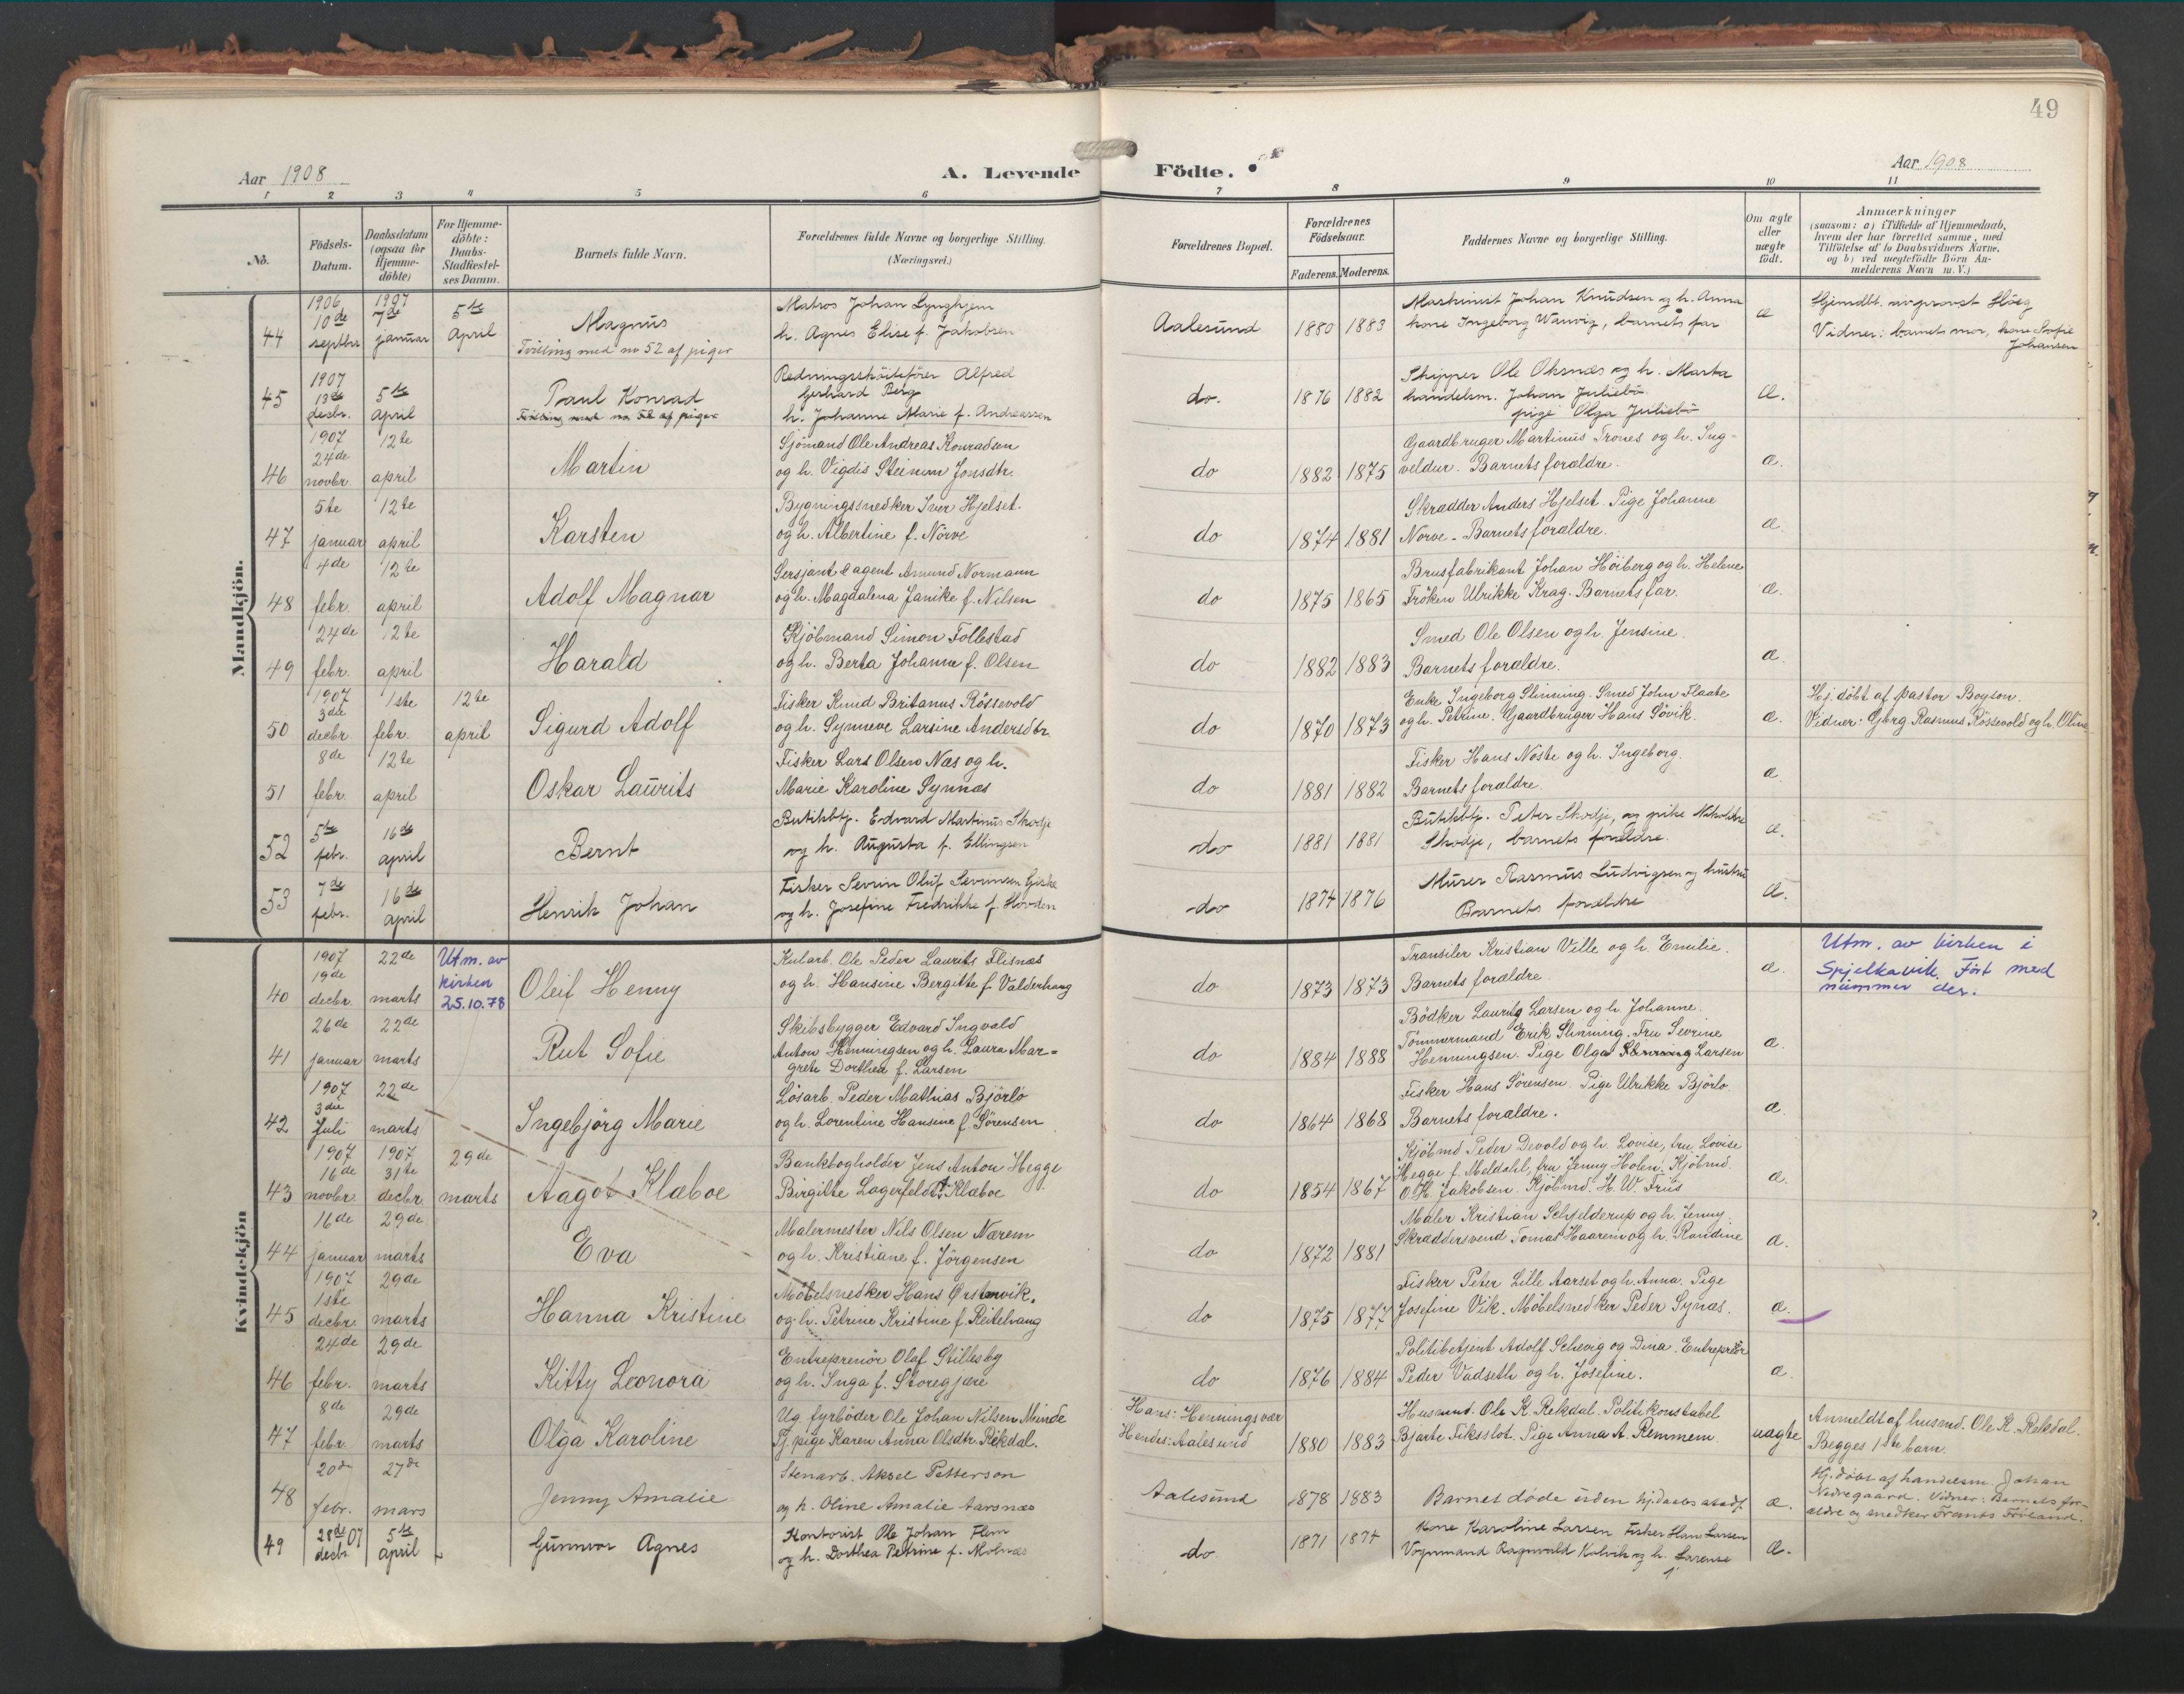 49
Aar 1908
A. Levende Födte.
Aar 1908
1 2 3 4 5 6 7 8 9 10 11
No.
Födsels-Datum.
Daabsdatum (ogsaa for Hjemme-döbte)
For Hjemme-döbte: Daabs-Stadfæstel-ses Datum.
Barnets fulde Navn.
Forældrenes fulde Navne og borgerlige Stilling.
(Næringsvei.)
Forældrenes Bopæl.
Forældrenes Födselsaar.
Faderens. Moderens.
Faddernes Navne og borgerlige Stilling.
Om ægte eller uægte födt.
Anmærkninger
(saasom: a) i Tilfælde af Hjemmedaab,
hvem der har forrettet samme, med
Tilföielse af to Daabsvidners Navne,
og b) ved uægtefödte Börn An-
melderens Navn m. V.)
Mandkjön.
44 1906 10de septbr 1907 7de januar 5te April
Magnus
Tvilling med no 52 af piger
Matros Johan Lynghjem
h. Agnes Elise f. Jakobsen
Aalesund 1880 1883
Maskinist Johan Knudsen og h. Anna
kone Ingeborg Wanvig, barnets far
æ
Hjemdbt. av provst Höeg
Vidner: barnets mor, kone Sofie
Johansen
45 1907 13de desbr. 5te April
Paul Konrad
Tvilling med no 52 af piger
Redningsskøitefører Alfred
Gerhard Berg
h. Johanne Marie f. Andreassen
do. 1876 1882
Skipper Ole Oksnæs og h. Marta
handelsm. Johan Juliebö
pige Olga Juliebö
æ.
46 1907 24de novbr. 12te april
Martin
Sjömand Ole Andreas Konradsen
og h. Vigdis Steinum Jonsdtr.
do 1882 1875
Gaardbruger Martinus Trones og h. Ing-
veldur. Barnets forældre.
æ.
47 5te januar 12te april
Karsten
Bygningssnedker Iver Hjelset.
og h. Albertine f. Nörve
do 1874 1881
Skrædder Anders Hjelset. Pige Johanne
Norve - Barnets forældre.
æ.
48 4de febr. 12te april
Adolf Magnar
Sersjant & agent Amund Normann
og h. Magdalena Janike f. Nilsen
do 1875 1865
Brusfabrikant Johan Höiberg og h. Helene
Fröken Ulrikke Krag. Barnets far.
æ.
49 24de febr. 12te april
Harald
Kjöbmand Simon Follestad
og h. Berta Johanne f. Olsen
do 1882 1883
Smed Ole Olsen og h. Jensine.
Barnets forældre.
æ.
50 1907 3die decbr. 1ste febr. 12te april
Sigurd Adolf
Fisker Knud Britanus Rössevold
og h. Synneve Larsine Andersdtr.
do 1870 1873
Enke Ingeborg Slinning. Smed John Flaate
og h. Petrine. Gaardbruger Hans Sövik.
æ.
Hj. döbt af pastor Boyson.
Vidner: Gbrg Rasmus Rössevold og h. Oline
51 8de febr. 12te april
Oskar Laurits
Fisker Lars Olsen Næs og h.
Marie Karoline Synnæs
do 1881 1882
Fisker Hans Noste og h. Ingeborg.
Barnets forældre.
æ.
52 5te febr. 16de april
Bernt
Butikbtj. Edvard Martinus Skodje
og h. Augusta f. Ellingsen
do 1881 1881
Butikbtj. Peter Skodje, og pike
Skodje, barnets forældre.
æ.
53 7de febr. 16de april
Henrik Johan
Fisker Sevrin Oluf Sevrinsen Giske
og h. Josefine Fredrikke f. Hovden
do 1874 1876
Murer Rasmus Ludvigsen og hustru
Barnets forældre
æ.
Kvindekjön
40 1907 19de decbr. 22de marts Utm. av kirken 25.10.78
Oleif Henny
Kularb. Ole Peder Laurits Flisnæs
og h. Hansine Bergitte f. Valderhaug
do 1873 1873
Transiler Kristian Ville og h. Emilie.
Barnets forældre.
æ.
Utm. av kirken i
Spjelkavik. Ført med
nummer der.
41 26de januar 22de marts
Rut Sofie
Skibsbygger Edvard Ingvald
Anton Henningsen og h. Laura Mar=
grete Dorthea f. Larsen
do 1884 1888
Bödker Laurits Larsen og h. Johanne.
Tömmermand Erik Slinning. Fru Sevrine
Henningsen. Pige Olga Larsen
æ.
42 1907 3die Juli 22de marts
Ingebjörg Marie
Lösarb. Peder Mathias Björlo
og h. Lorentine Hansine f. Sörensen
do 1864 1868
Fisker Hans Sörensen. Pige Ulrikke Björlo.
Barnets forældre.
æ.
43 1907 16de novbr. 1907 31te decbr 29de marts
Aagot Klæboe
Bankbogholder Jens Anton Hegge
Birgitte Lagerfeldt f. Klæboe
do 1854 1867
Kjöbmd Peder Devold og h. Lovise, fru Lovise
Hegge f. Meldahl, fru Jenny Holen. Kjöbmd.
O. K. Jakobsen. Kjöbmd. H. W. Friis
æ.
44 16de januar 29de marts
Eva
Malermester Nils Olsen Nærem
og h. Kristiane f. Jörgensen
do 1872 1881
Maler Kristian Schjelderup og h. Jenny.
Skræddersvend Tomas Haarem og h. Randine
æ.
45 1907 1ste decbr. 29de marts
Hanna Kristine
Möbelsnedker Hans Örstenvik.
og h. Petrine Kristine f. Reitelvang
do 1875 1877
Fisker Peter Lille Aarset og h. Anna. Pige
Josefine Vik. Möbelsnedker Peder Synæs.
æ.
46 24de febr. 29de marts
Kitty Leonora
Entreprenör Olaf Stillesby
og h. Inga f. Storegjære
do 1876 1884
Politibetjent Adolf Schevig og Dina. Entreprenör
Peder Vadseth og h. Josefine.
æ.
47 8de febr. 29de marts
Olga Karoline
Ug. fyrböder Ole Johan Nilsen Minde
Tj. pige Karen Anna Olsdtr. Rekdal.
Hans: Henningsvær
Hendes: Aalesund 1880 1883
Husmd. Ole K. Rekdal. Politikonstabel
Bjarte Fiksslot. Pige Anna A. Remmem.
uægte
Anmeldt af husmd. Ole K. Rekdal.
Begges 1ste barn.
48 20de febr. 27de mars
Jenny Amalie
Stenarb. Aksel Petterson
og h. Oline Amalie Aarsnæs
Aalesund 1878 1883
Barnet döde uden hj.daabs stadf.
æ.
Hj. döbt af handelsm. Johan
Nedregaard. Vidner: Barnets for-
ældre og snedker Frants Förland.
49 28de decbr. 07 5te april
Gunnvor Agnes
Kontorist Ole Johan Flem
og h. Dorthea Petrine f. Molnæs
do 1871 1874
Kone Karoline Larsen Fisker Hans Larsen
Vognmand Ragnvald Kolvik og h. Larense
æ.